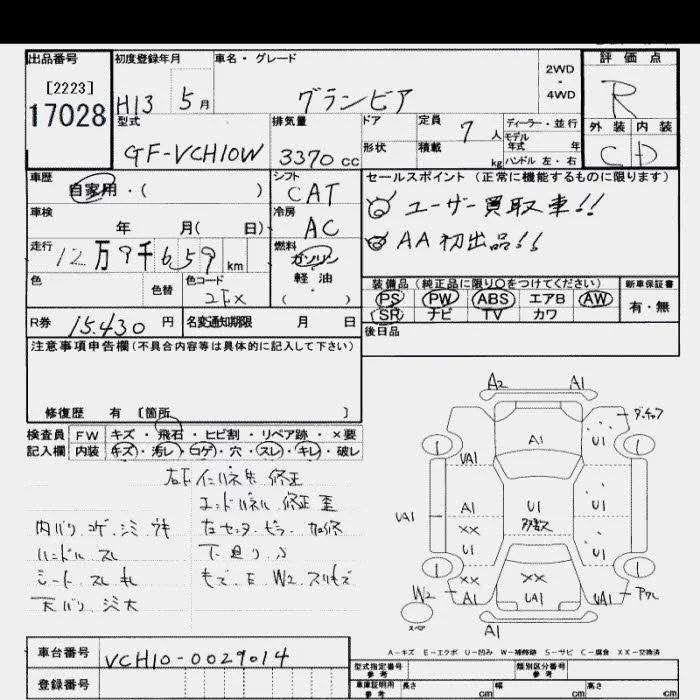 出品番号 初度登録年月 車名・グレード 評価点
[2223] 2WD・4WD
17028 H13 5月 グランビア R
型式 排気量 ドア 定員 7人 ディーラー・並行 外装 内装
GF-VCH10W 3370cc 形状 積載 kg モデル年式 年 ハンドル 左・右 C D
車歴 シフト セールスポイント (正常に機能するものに限ります)
自家用・( ) CAT ユーザー買取車!!
車検 冷房 AA初出品!!
年 月( 日) AC
走行 燃料
12万9千659km ガソリン
色 色替 色コード 軽油 装備品 (純正品に限り○をつけてください) 新車保証書
2EX ( ) PS PW ABS エアB AW 有・無
SR ナビ TV カワ
R券 15.430円 名変通知期限 月 日 後日品
注意事項申告欄 (不具合内容等は具体的に記入して下さい)
修復歴 有 [箇所 ]
検査員 FW キズ・飛石・ヒビ割・リペア跡・×要
記入欄 内装 キズ・汚レ・コゲ・穴・スレ・キレ・破レ
修正
修正 歪
内バリ コゲ シミ
ハンドル スレ
シート スレ キレ
天バリ
W2
A2 A1
A1 U1
UA1
UA1 A1 U1
XX 多数
U1
XX XX
W2 A1 UA1 UA1
スペア A1
A-キズ E-エクボ U-凹み W-補修跡 S-サビ C-腐食 XX-交換済
車台番号 VCH10-0029014
登録番号
型式指定番号 参考 類別区分番号 参考
車庫証明用 参考 長さ cm 幅 cm 高さ cm